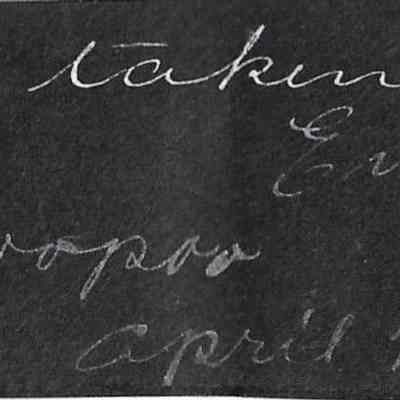 taken
En
oopoo
april